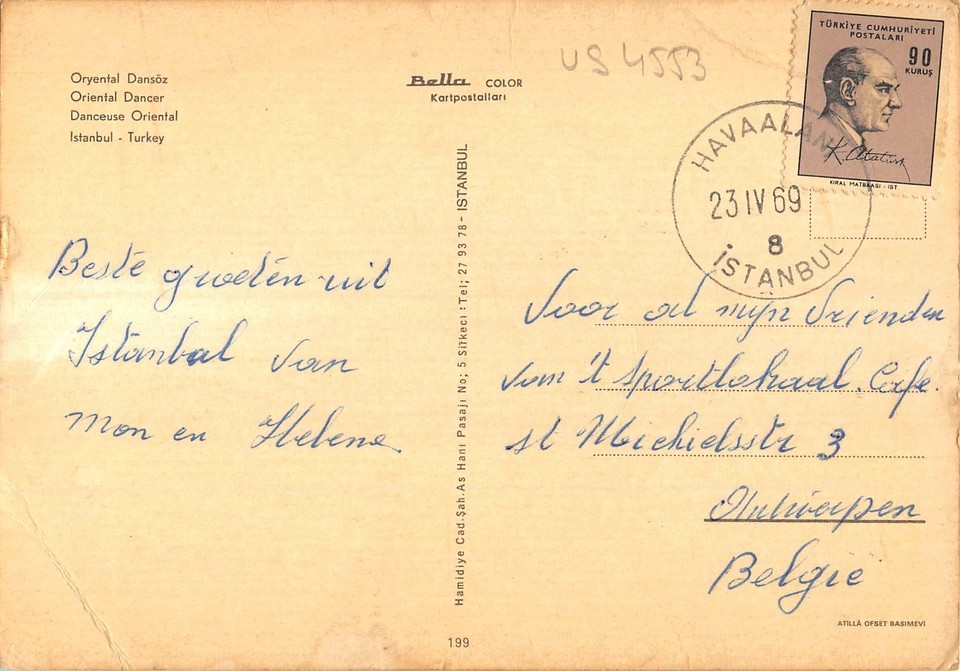 Oryental Dansöz
Oriental Dancer
Danceuse Oriental
Istanbul - Turkey
Bella COLOR
Kartpostalları
US 4553
TÜRKİYE CUMHURİYETİ
POSTALARI
90
KURUŞ
K. Atatürk
KIRAL MATBAASI - IST
HAVAALANI
23 IV 69
8
İSTANBUL
Beste groeten uit
Istanbul van
Mon en Helene
Hamidiye Cad. Şah.As Hanı Pasajı No; 5 Sirkeci :Tel; 27 93 78 - ISTANBUL
Voor al mijn vrienden
van 't Sportlokaal. Cafe.
st Michielsstr 3
Antwerpen
België
ATİLLÂ OFSET BASIMEVİ
199